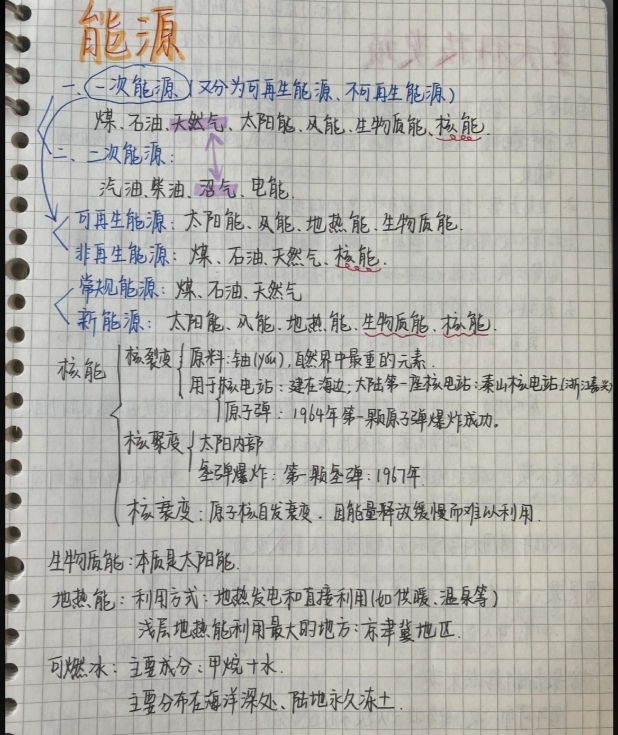 能源
一、一次能源(又分为可再生能源、不可再生能源)
煤、石油、天然气、太阳能、风能、生物质能、核能.
二、二次能源:
汽油、柴油、沼气、电能.
可再生能源:太阳能、风能、地热能、生物质能.
非再生能源:煤、石油、天然气、核能.
常规能源:煤、石油、天然气
新能源:太阳能、风能、地热能、生物质能、核能.
核能
核裂变
原料:铀(yóu),自然界中最重的元素.
用于核电站:建在海边,大陆第一座核电站:秦山核电站(浙江嘉兴)
原子弹:1964年第一颗原子弹爆炸成功。
核聚变
太阳内部
氢弹爆炸:第一颗氢弹:1967年.
核衰变:原子核自发衰变.因能量释放缓慢而难以利用.
生物质能:本质是太阳能.
地热能:利用方式:地热发电和直接利用(如供暖、温泉等)
浅层地热能利用最大的地方:京津冀地区.
可燃冰:主要成分:甲烷+水.
主要分布在海洋深处、陆地永久冻土.